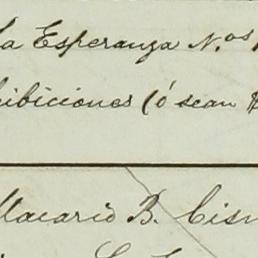 la Esperanza N.os
hibiciones (ó sean
Macario B. Cisn